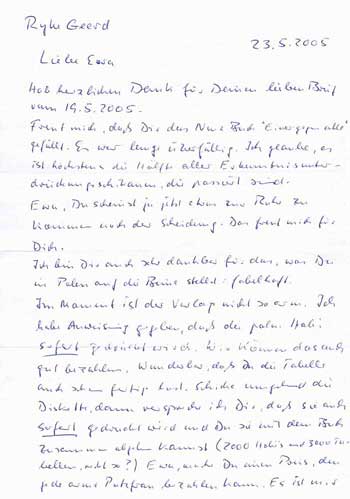 Ryke Geerd
23.5.2005
Liebe Ewa
Hab herzlichen Dank für Deinen lieben Brief
vom 19.5.2005.
Freut mich, daß Dir das Neue Buch "Einer gegen alle"
gefällt. Es war längst überfällig. Ich glaube, es
ist höchstens die Hälfte aller Erkenntnisunter-
drückungsschikanen, die passiert sind.
Ewa, Du scheinst ja jetzt etwas zur Ruhe zu
kommen nach der Scheidung. Das freut mich für
Dich.
Ich bin Dir auch sehr dankbar für das, was Du
in Polen auf die Beine stellst: fabelhaft.
Im Moment ist der Verlag nicht so arm. Ich
habe Anweisung gegeben, daß die poln.
sofort gedruckt wird. Wir können das auch
gut bezahlen. Wunderbar, daß Du die Tabelle
auch schon fertig hast. Schicke umgehend die
Diskette, dann verspreche ich Dir, daß sie auch
sofort gedruckt wird und Du sie mit dem Buch
zusammen abholen kannst (2000 und 3000 Ta-
bellen, nicht?) Ewa, mache Du einen Preis, den
jede arme Putzfrau bezahlen kann. Es ist mir